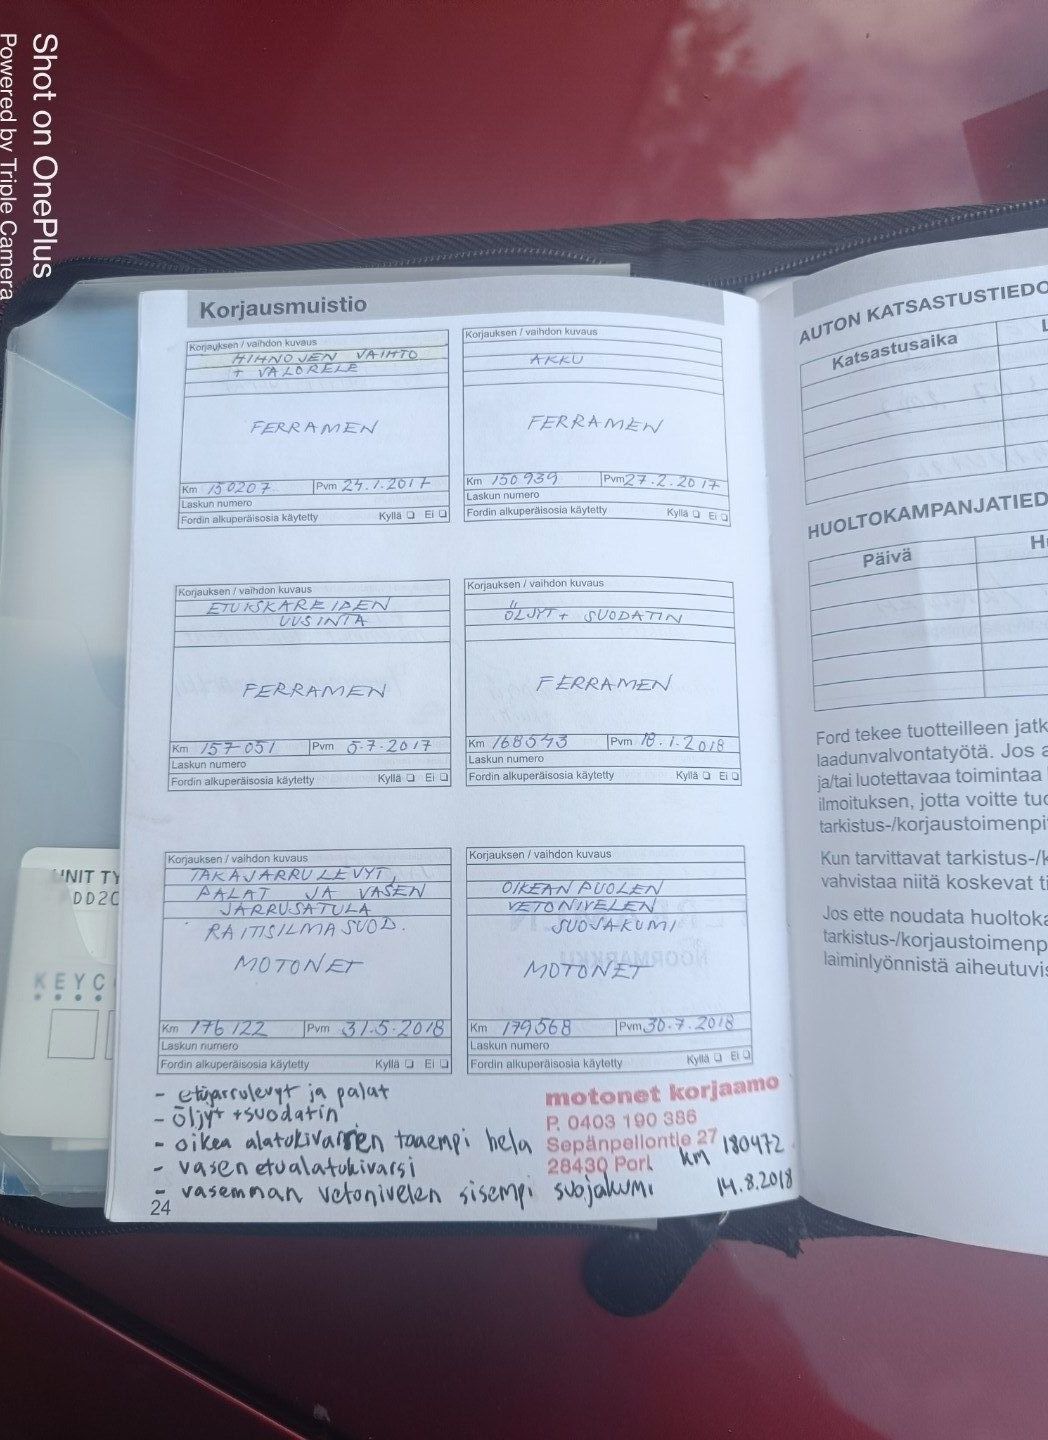 Shot on OnePlus
Powered by Triple Camera
Korjausmuistio
Korjauksen / vaihdon kuvaus
HIHNOJEN VAIHTO
+ VALORELE
FERRAMEN
Km 150207 Pvm 24.1.2017
Laskun numero
Fordin alkuperäisosia käytetty Kyllä ❏ Ei ❏
Korjauksen / vaihdon kuvaus
AKKU
FERRAMEN
Km 150939 Pvm 27.2.2017
Laskun numero
Fordin alkuperäisosia käytetty Kyllä ❏ Ei ❏
Korjauksen / vaihdon kuvaus
ETUISKAREIDEN
UUSINTA
FERRAMEN
Km 157051 Pvm 5.7.2017
Laskun numero
Fordin alkuperäisosia käytetty Kyllä ❏ Ei ❏
Korjauksen / vaihdon kuvaus
ÖLJYT + SUODATIN
FERRAMEN
Km 168543 Pvm 18.1.2018
Laskun numero
Fordin alkuperäisosia käytetty Kyllä ❏ Ei ❏
Korjauksen / vaihdon kuvaus
TAKAJARRULEVYT,
PALAT JA VASEN
JARRUSATULA
RAITISILMASUOD.
MOTONET
Km 176122 Pvm 31.5.2018
Laskun numero
Fordin alkuperäisosia käytetty Kyllä ❏ Ei ❏
Korjauksen / vaihdon kuvaus
OIKEAN PUOLEN
VETONIVELEN
SUOJAKUMI
MOTONET
Km 179568 Pvm 30.7.2018
Laskun numero
Fordin alkuperäisosia käytetty Kyllä ❏ Ei ❏
- etujarrulevyt ja palat
- öljyt + suodatin
- oikea alatukivarren taaempi hela
- vasen etualatukivarsi
- vasemman vetonivelen sisempi suojakumi
motonet korjaamo
P. 0403 190 386
Sepänpellontie 27
28430 Pori
km 180472
14.8.2018
24
AUTON KATSASTUSTIEDO
Katsastusaika
L
HUOLTOKAMPANJATIED
Päivä
Hu
Ford tekee tuotteilleen jatk
laadunvalvontatyötä. Jos a
ja/tai luotettavaa toimintaa
ilmoituksen, jotta voitte tuo
tarkistus-/korjaustoimenpi
Kun tarvittavat tarkistus-/k
vahvistaa niitä koskevat ti
Jos ette noudata huoltoka
tarkistus-/korjaustoimenp
laiminlyönnistä aiheutuvis
UNIT TY
DD2C
KEYC